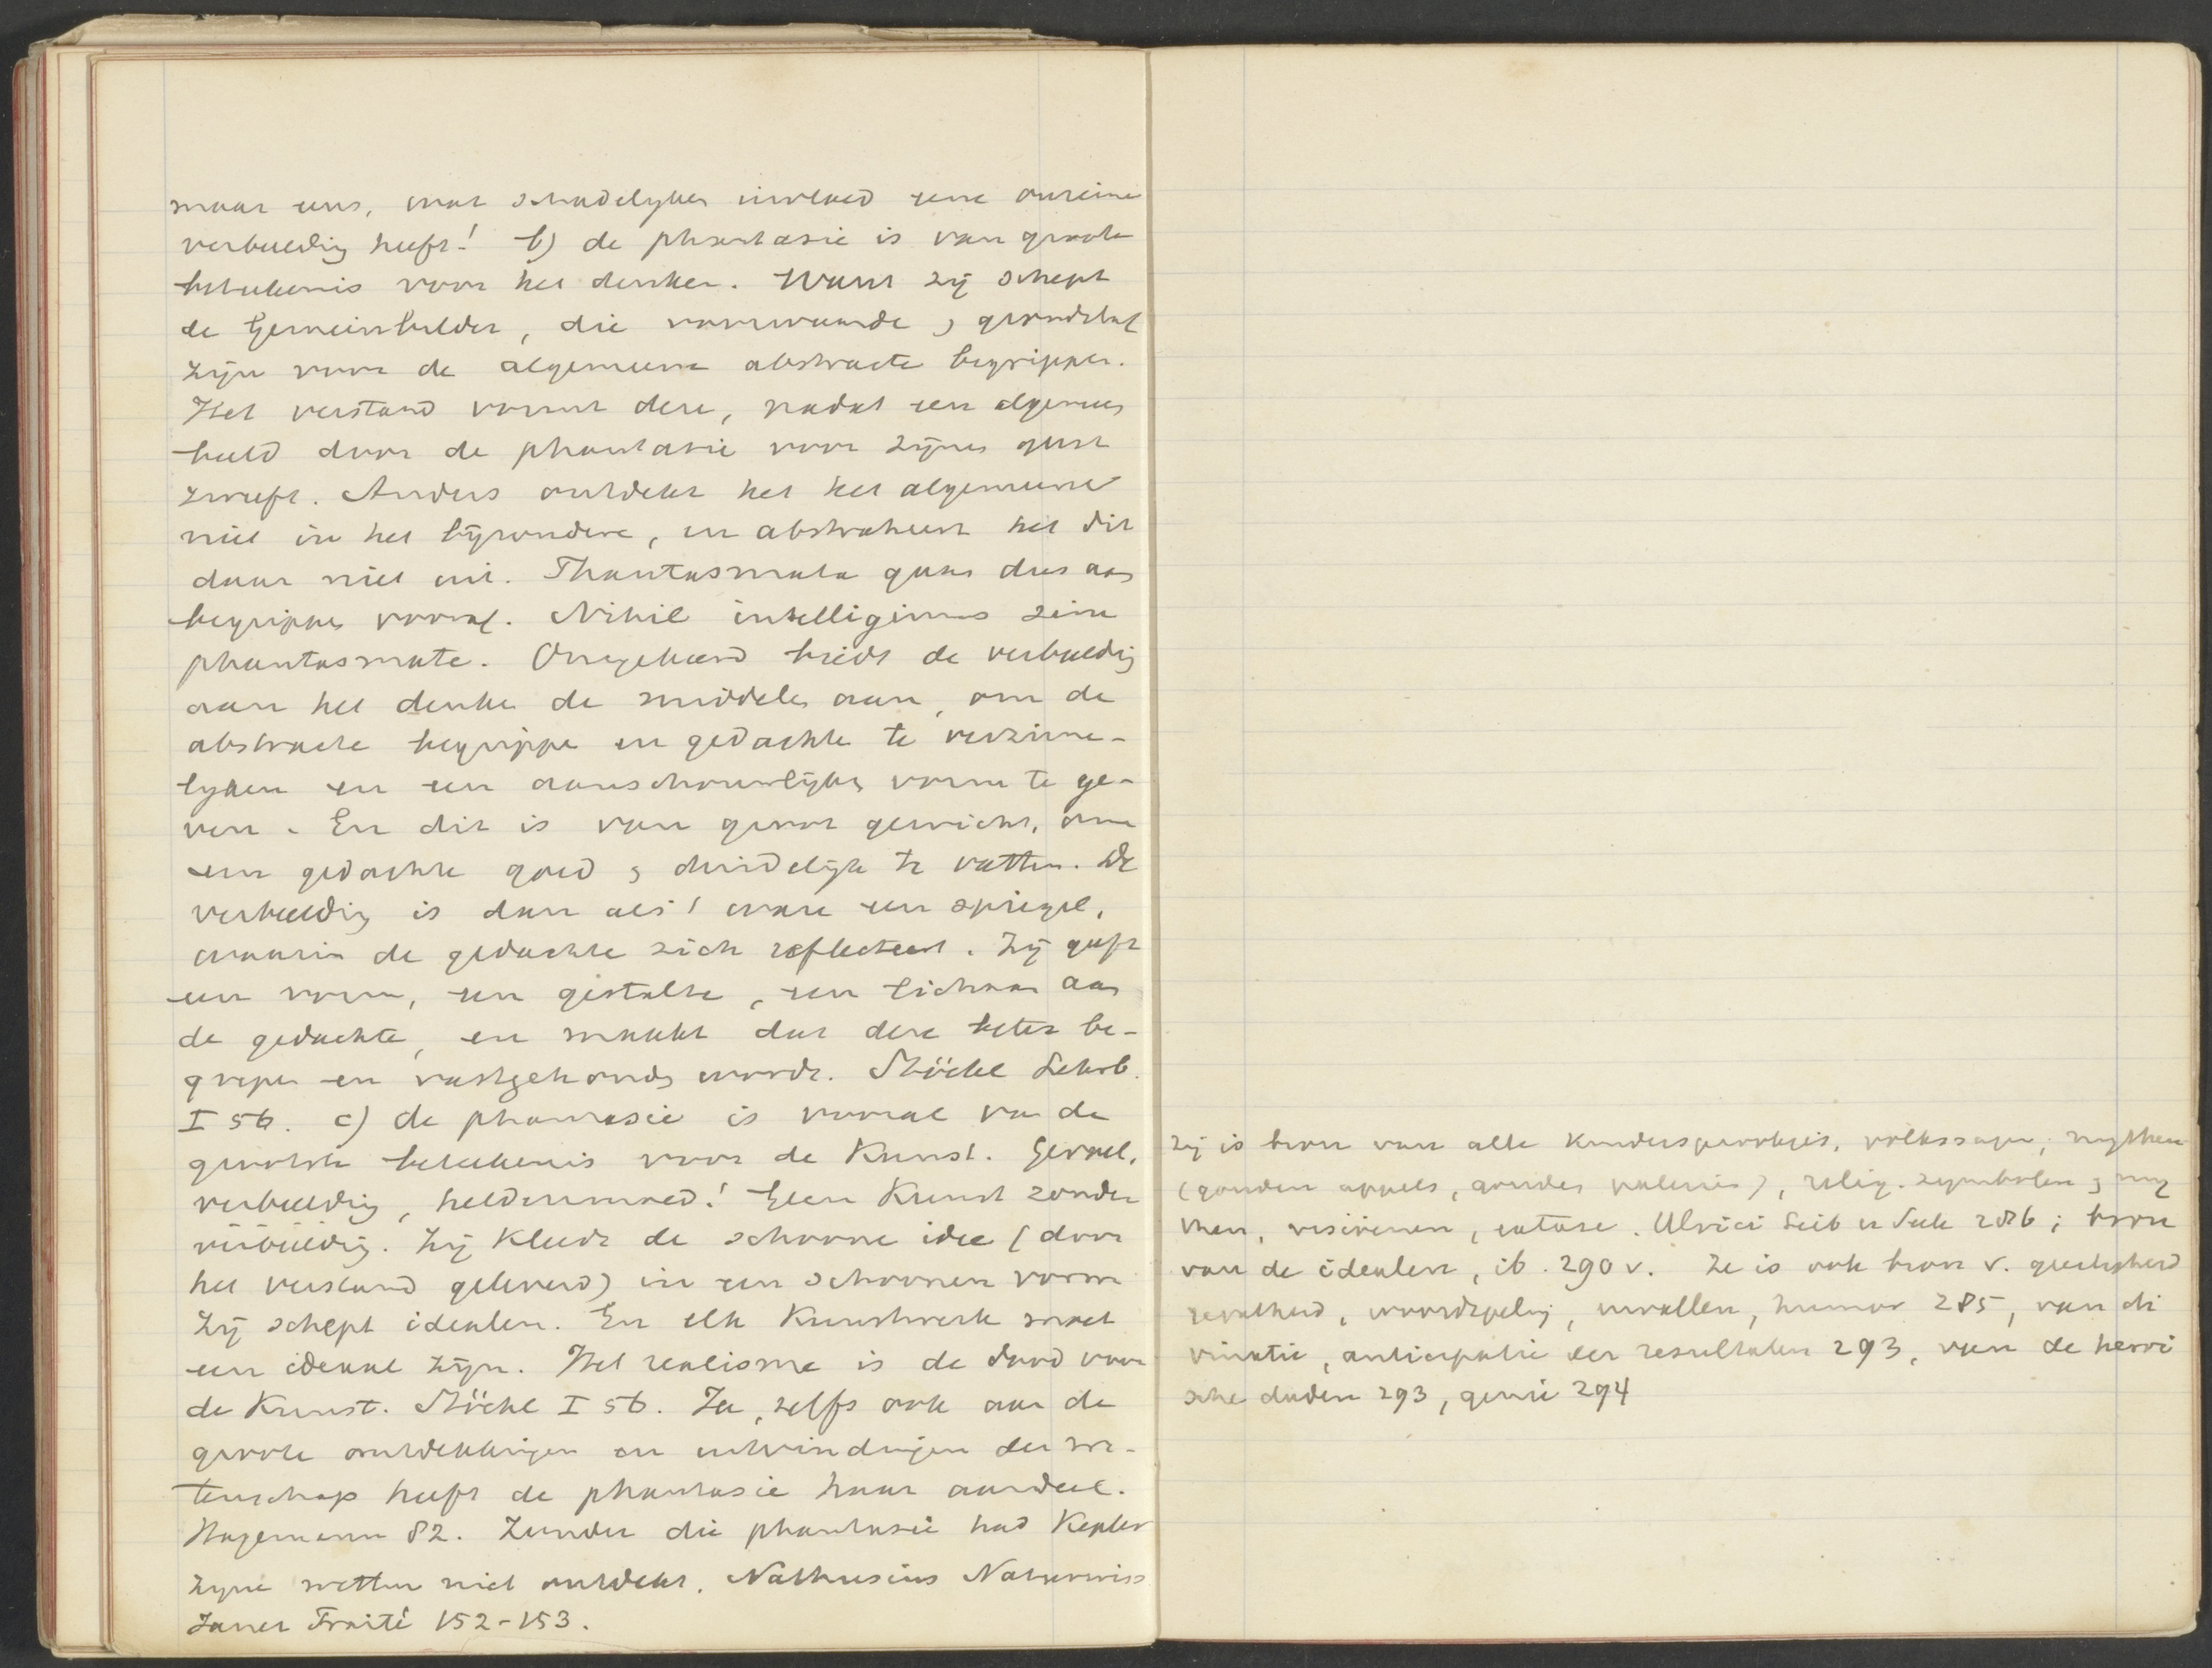 maar eens, wat schadelyken invloed eene onreine
verbeelding heeft! b) de phantasie is van groote
beteekenis voor het denken. Want zij schept
de Gemeinbilder, die voorwaarde & grondslag
zijn voor de algemeene abstracte begrippen.
Het verstand vormt deze, nadat een algemeen
beeld door de phantasie voor zijnen geest
zweeft. Anders ontdekt het het algemeene
niet in het bijzondere, en abstraheert het dit
daar niet uit. Phantasmata gaan dus aan
begrippen vooraf. Nihil intelligimus sine
phantasmate. Omgekeerd biedt de verbeelding
aan het denken de middelen aan, om de
abstracte begrippen en gedachte te verzinne-
lyken en een aanschouwlijken vorm te ge-
ven. En dit is van groot gewicht, om
een gedachte goed & duidelijk te vatten. De
verbeelding is dan als 't ware een spiegel,
waarin de gedachte zich reflecteert. Zij geeft
een vorm, een gestalte, een lichaam aan
de gedachte, en maakt dat deze beter be-
grepen en vastgehouden wordt. Stöckl Lehrb.
I 56. c) de phantasie is vooral van de
grootste beteekenis voor de Kunst. Gevoel,
verbeelding, heldenmoed! Geen Kunst zonder
verbeelding. Zij Kleedt de schoone idee (door
het verstand geleverd) in een schoonen vorm
Zij schept idealen. En elk Kunstwerk moet
een ideaal zijn. Het realisme is de dood voor
de Kunst. Stöckl I 56. Ja, zelfs ook aan de
groote ontdekkingen en uitvindingen der we-
tenschap heeft de phantasie haar aandeel.
Hagemann 82. Zonder die phantasie had Kepler
zyne wetten niet ontdekt. Nathusius Naturwiss
Janet Traité 152-153.
Zij is bron van alle Kindersprookjes, volkssagen, mythen
(gouden appels, gouden paleizen), relig. symbolen &
visioenen, extase. Ulrici Leib u Seele 286; bron
van de idealen, ib. 290 v. Ze is ook bron v. geestigheid
gevatheid, woordspeling, invallen, humor 285, van di
vinatie, anticipatie der resultaten 293, van de heroi
sche daden 293, genie 294